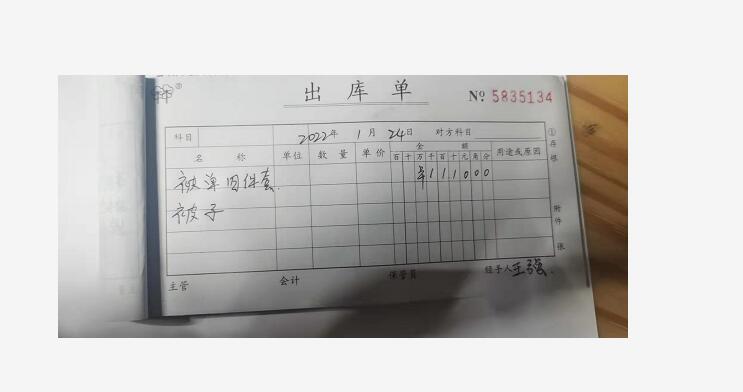 出库单
№ 5835134
科目 2022年 1月 24日 对方科目
名称 单位 数量 单价 金额 用途或原因
百 十 万 千 百 十 元 角 分
被单四件套 ¥111000
被子
主管 会计 保管员 经手人 王强
①存根
附件 张